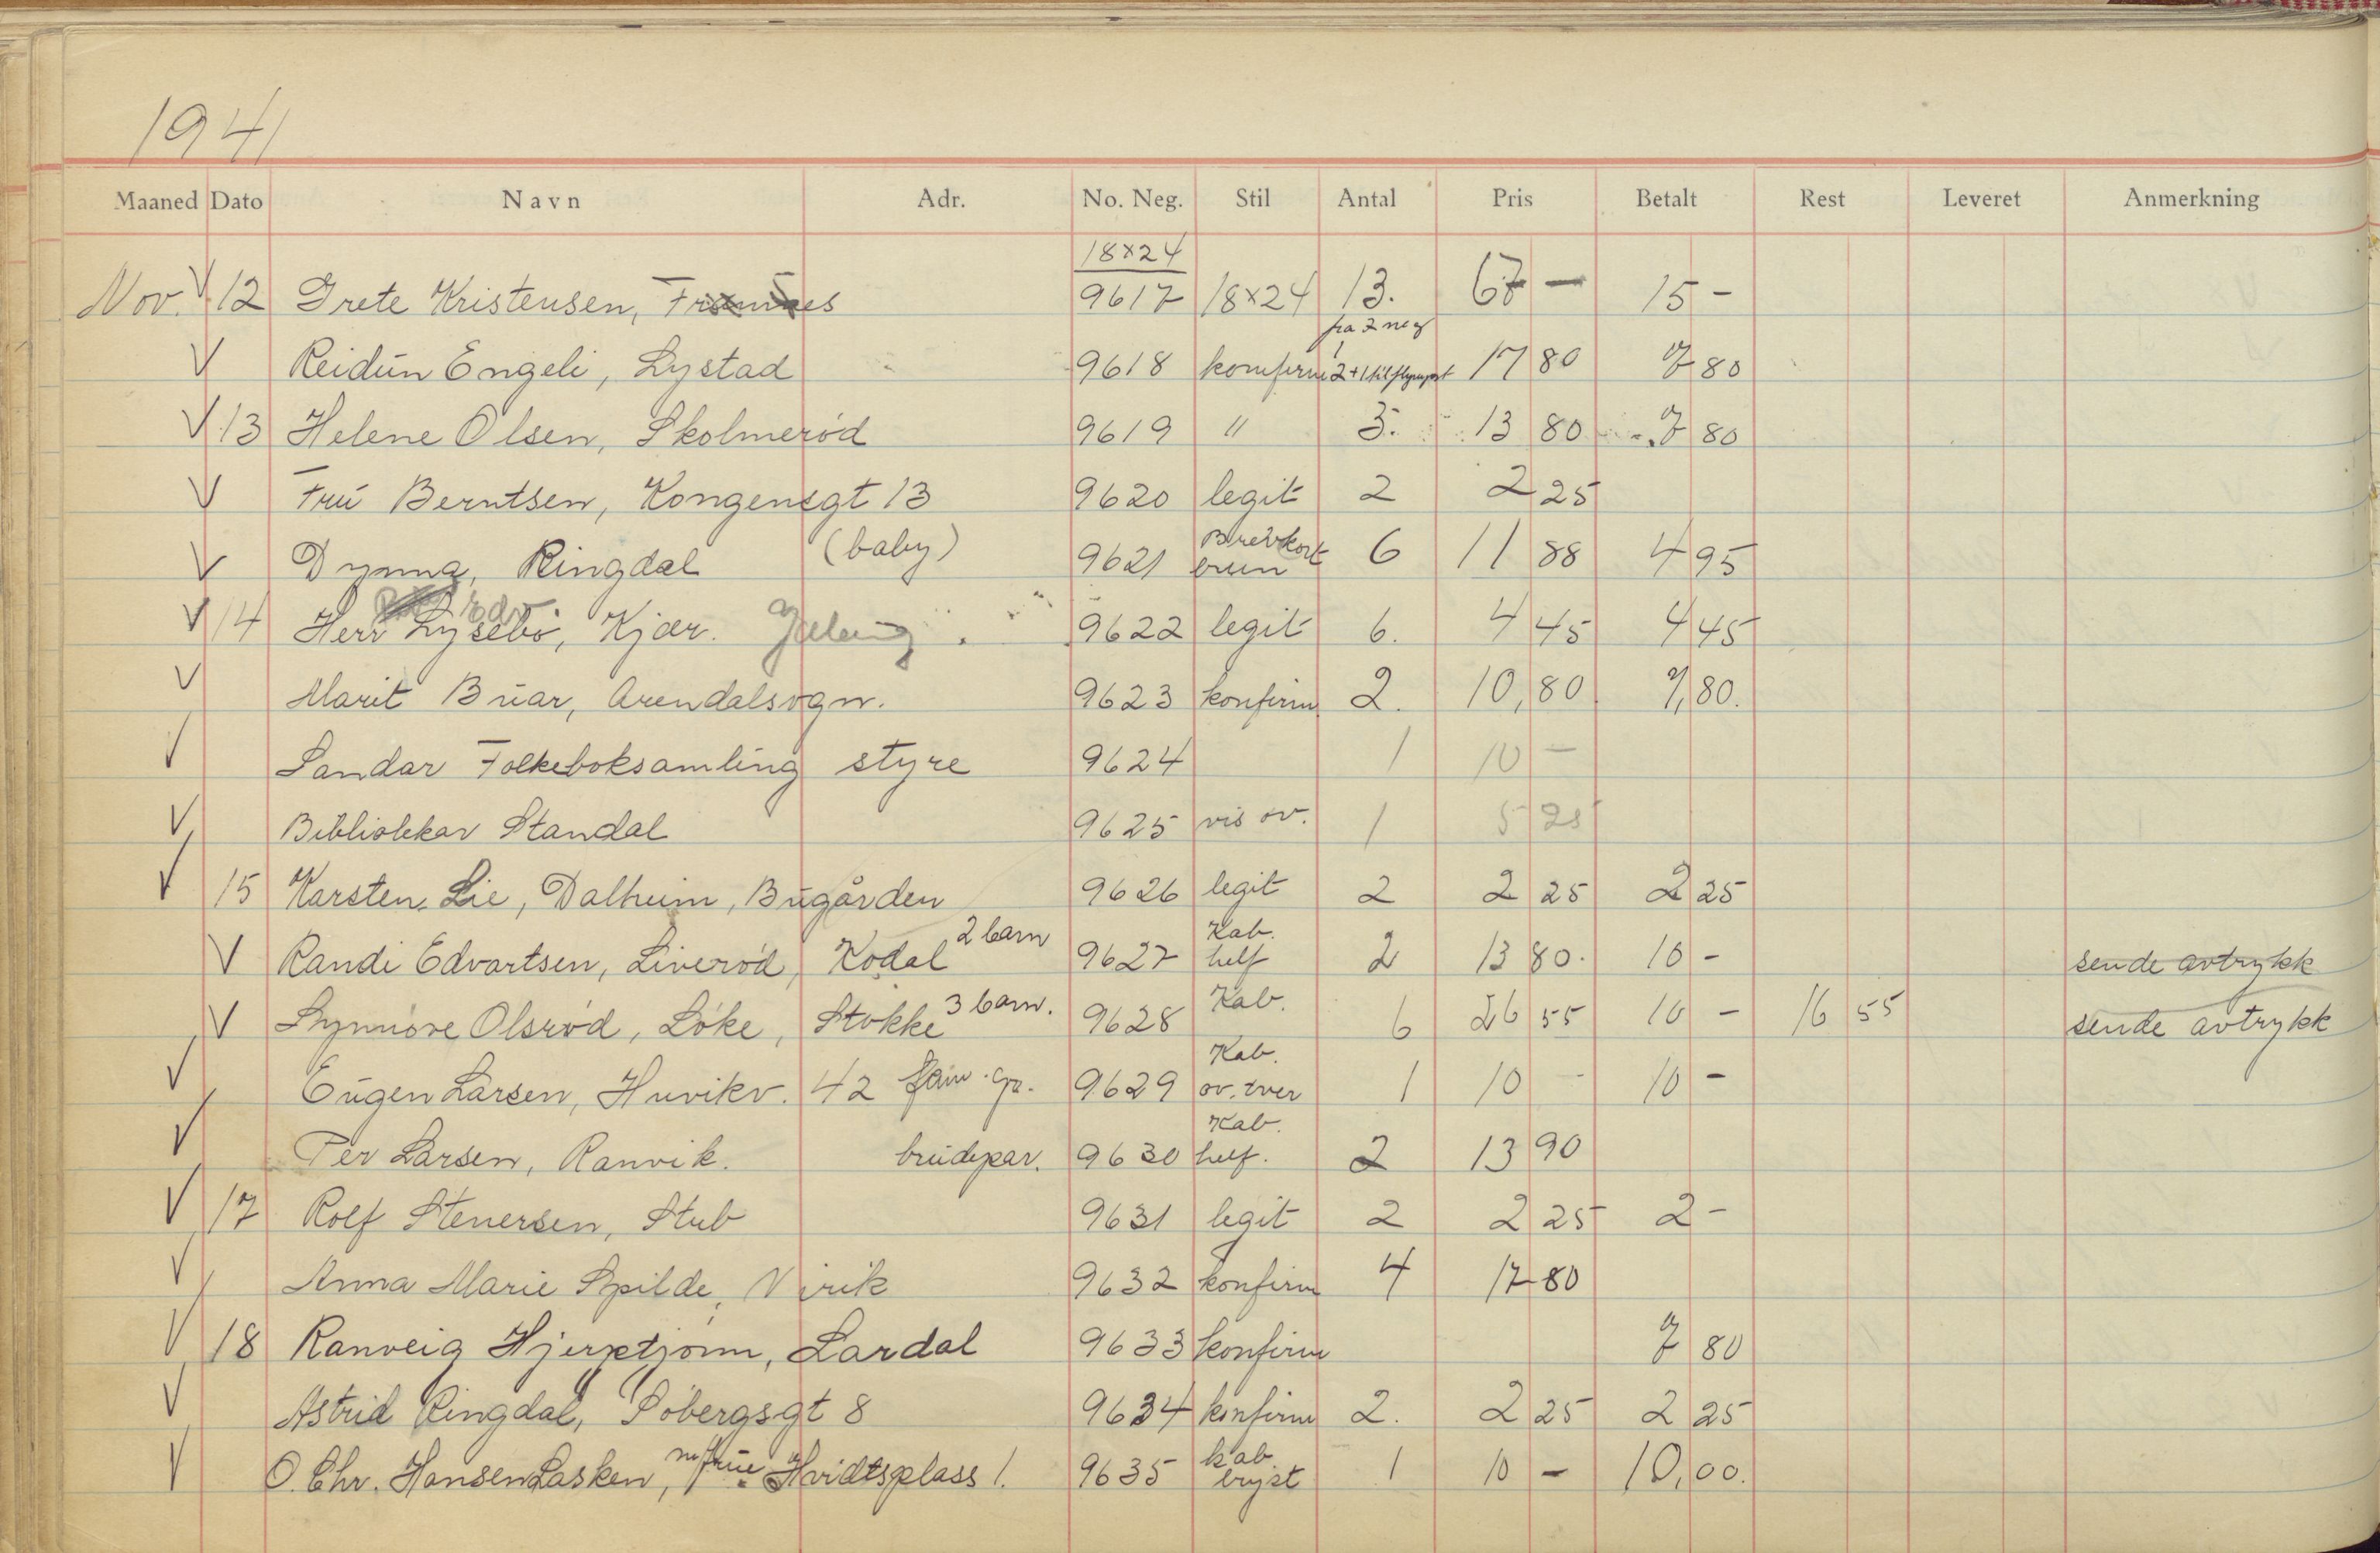 1941
Maaned Dato Navn Adr. No. Neg. Stil Antal Pris Betalt Rest Leveret Anmerkning
18×24
Nov. V 12 Grete Kristensen, 9617 18×24 13. 67 — 15 -
fra 2 neg
V Reidun Engeli, Lystad 9618 konfirm 2+1 til 17 80 7 80
V 13 Helene Olsen, Skolmeröd 9619 " 3. 13 80 7 80
V Fru Berntsen, Kongensgt 13 9620 legit 2 2 25
V Dynna, Ringdal (baby) 9621 Brevkort brun 6 11 88 4 95
V 14 Herr Lysebö, Kjær. 9622 legit 6. 4 45 4 45
V Marit Buar, Arendalsogn. 9623 konfirm 2. 10,80 7,80.
V Sandar Folkeboksamling styre 9624 1 10 —
V Bibliotekar Standal 9625 vis ov. 1 5 25
V 15 Karsten Lie, Dalheim, Bugården 9626 legit 2 2 25 2 25
V Randi Edvartsen, Liveröd, Kodal 2 barn 9627 Kab. helf 2 13 80. 10 - sende avtrykk
V Synnöve Olsröd, Löke, Stokke 3 barn. 9628 Kab. 6 26 55 10 - 16 55 sende avtrykk
V Eugen Larsen, Huvikv. 42 fam. gr. 9629 Kab. ov. tver 1 10 - 10 -
V Per Larsen, Ranvik. brudepar. 9630 Kab. helf. 2 13 90
V 17 Rolf Stenersen, Stub 9631 legit 2 2 25 2 -
V Anna Marie Spilde, Virik 9632 konfirm 4 17 80
V 18 Ranveig Hjerptjönn, Lardal 9633 konfirm 7 80
V Astrid Ringdal, Söbergsgt 8 9634 konfirm 2. 2 25 2 25
V O. Chr. Hansen Lasken, m/frue Hvidtsplass 1. 9635 kab bryst 1 10 — 10,00.